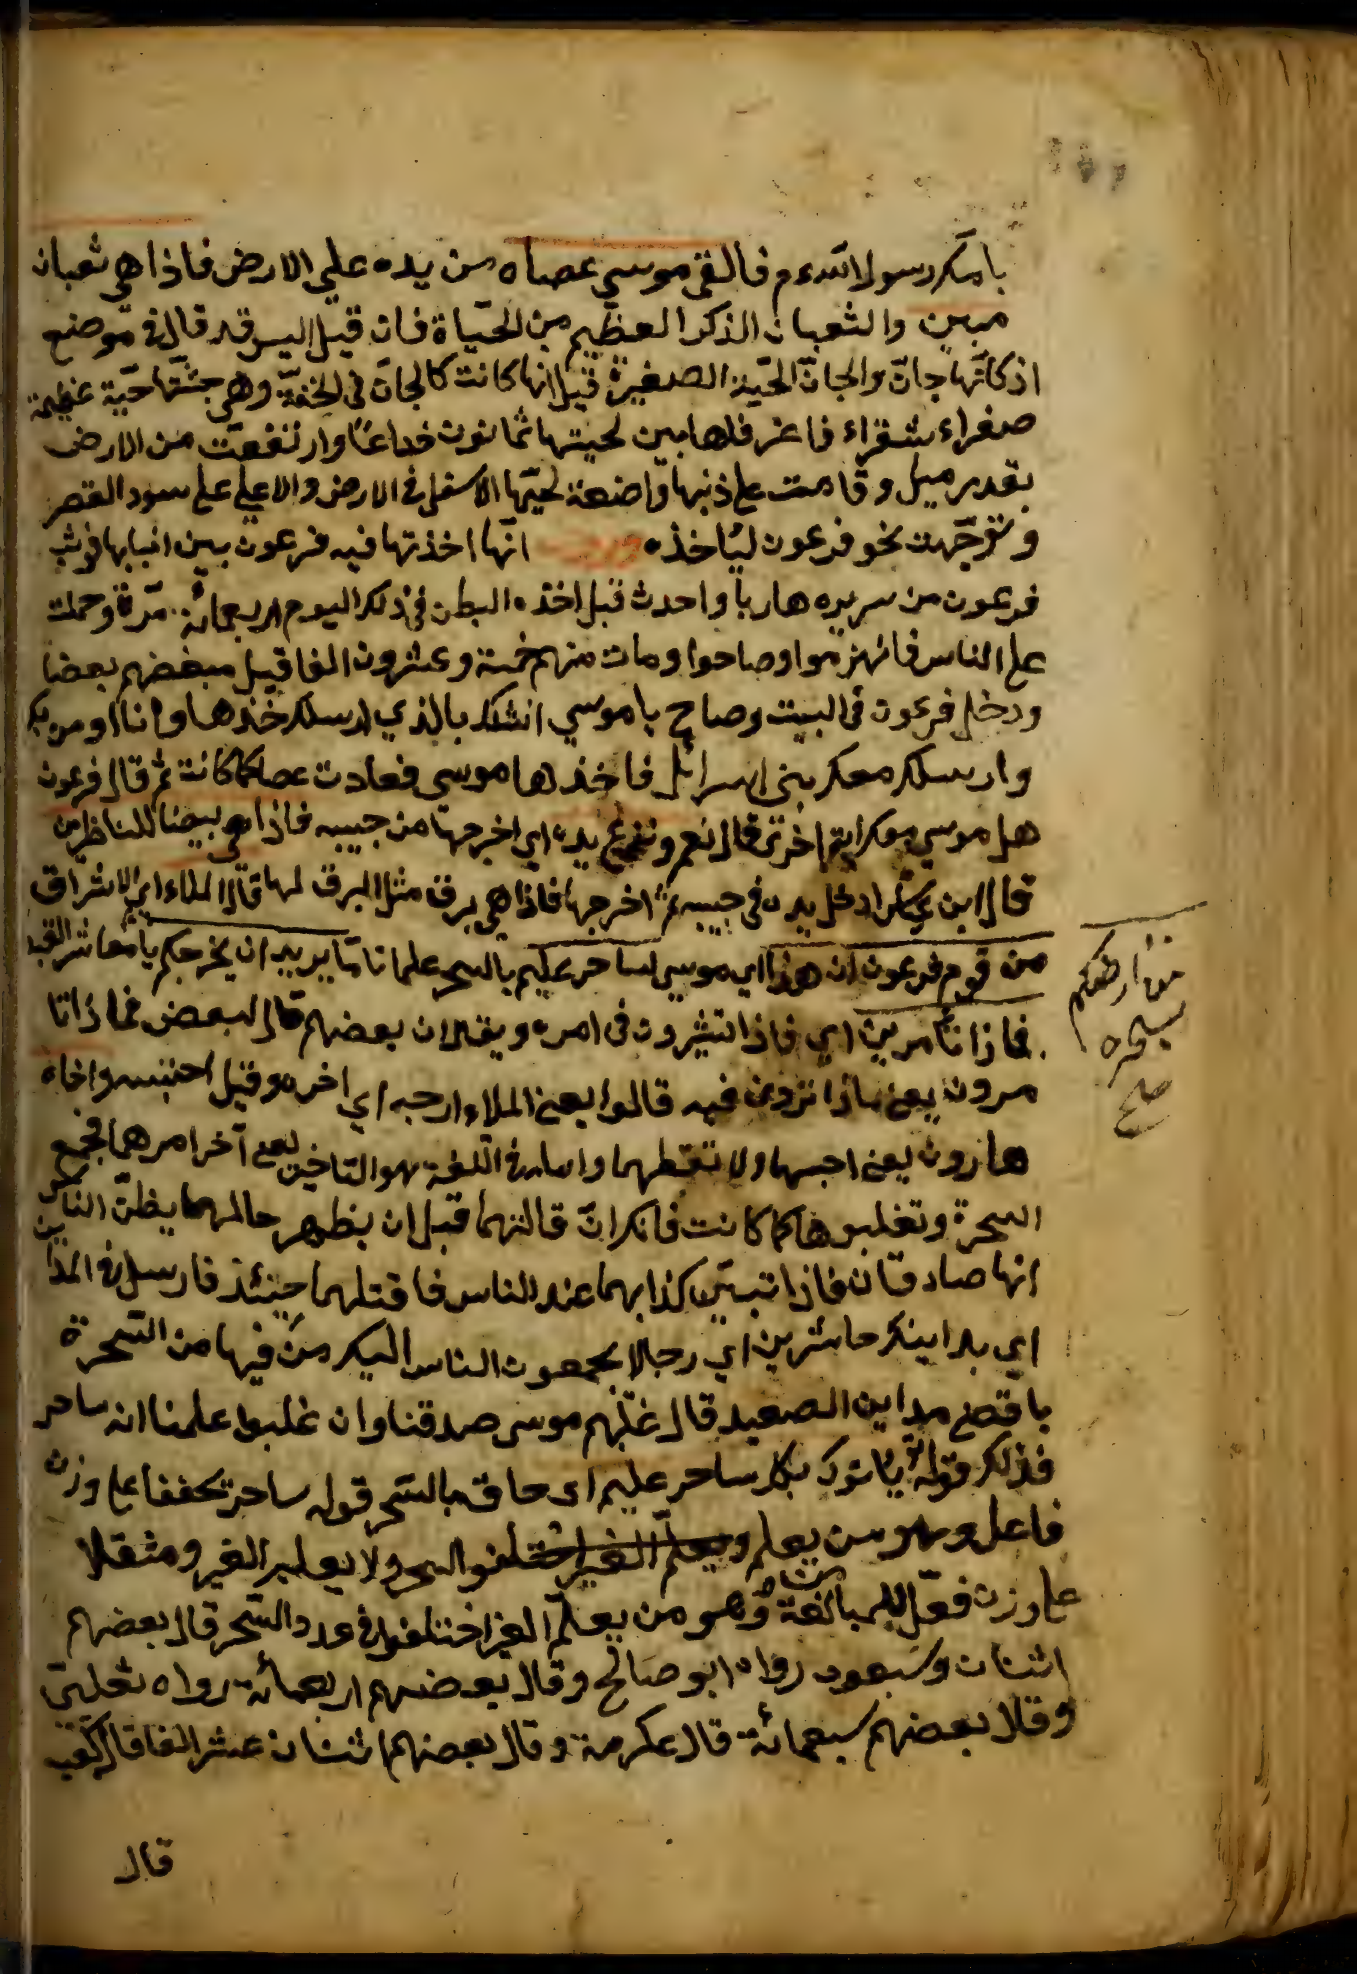 بانك رسول الله م فالقى موسى عصاه من يده على الارض فاذا هي ثعبان
مبين والثعبان الذكر العظيم من الحيّاة فان قيل اليس قد قال في موضع
اذ كانّها جانّ والجانّ الحيّة الصغيرة قيل انها كانت كالجانّ في الخفّة وهي جثّتها حيّة عظيمة
صفراء شقراء فاغر فاها بين لحيتها ثمانون ذراعًا وارتفعت من الارض
بقدر ميل وقامت على ذنبها واضعة لحيّها الاسفل في الارض والاعلى على سور القصر
وتوجّهت نحو فرعون ليأخذه وروى انّها اخذتها فيه فرعون بين انيابها فوثب
فرعون من سريره هاربا واحدث قبل اخذه البطن في ذلك اليوم اربعمائة مرّة وحملت
على الناس فانهزموا وصاحوا ومات منهم خمسة وعشرون الفا قيل بعضهم بعضا
ودخل فرعون في البيت وصاح يا موسى انشدك بالذي ارسلك خذها وانا اومن بك
وارسلك معك بني اسرائل فاخذها موسى فعادت عصا كما كانت ثم قال فرعون
هل موسى معك اية اخرى قال نعم ونزع يده اي اخرجها من جيبه فاذا هي بيضا للناظرين
قال ابن عباس ادخل يده في جيبه ثم اخرجها فاذا هي برق مثل البرق لها قال الملاء اي الاشراق
من قوم فرعون ان هذا اي موسى لساحر عليم بالسحر يريد ان يخرجكم يا معاشر القبط
من ارضكم
بسحره
صح
فماذا تأمرين اي فاذا تشيرون في امره ويقال ان بعضهم قال لبعض فماذا تا
مرون يعني ماذا تردون فيه قالوا يعني الملاء ارجه اي اخره وقيل احتبسه واخاه
هارون يعني احبسها ولا تقتلهما في اللغة هو التاخير يعني آخر امرهما فجمع
السحرة وتغلبوهما كما كانت فانك ان قتلتهما قبل ان يظهر حالهما يظنّ الناس
انهما صادقان فاذا تبيّن كذابهما عند الناس فاقتلهما حينئذ فارسل في المداين
اي بمداينك حاشرين اي رجالا يجمعون الناس اليك من فيها من السّحرة
باقصى مداين الصعيد قال غلبهم موسى صدقنا وان غلبوا علمنا انه ساحر
فذلك قوله يأتوك بكل ساحر عليم اي حاذق بالسّحر قوله ساحر تخففا على وزن
فاعل وهو من يعلم السحر ولا يعلم الغير ومثقلا
على وزن فعّال للمبالغة وهو من يعلّم الغير اختلفوا في عدد السّحر قال بعضهم
اثنان وسبعون رواه ابو صالح وقال بعضهم اربعمائة رواه ثعلبى
وقال بعضهم سبعمائة قال عكرمة وقال بعضهم اثنان عشر الفا قال كعب
قال